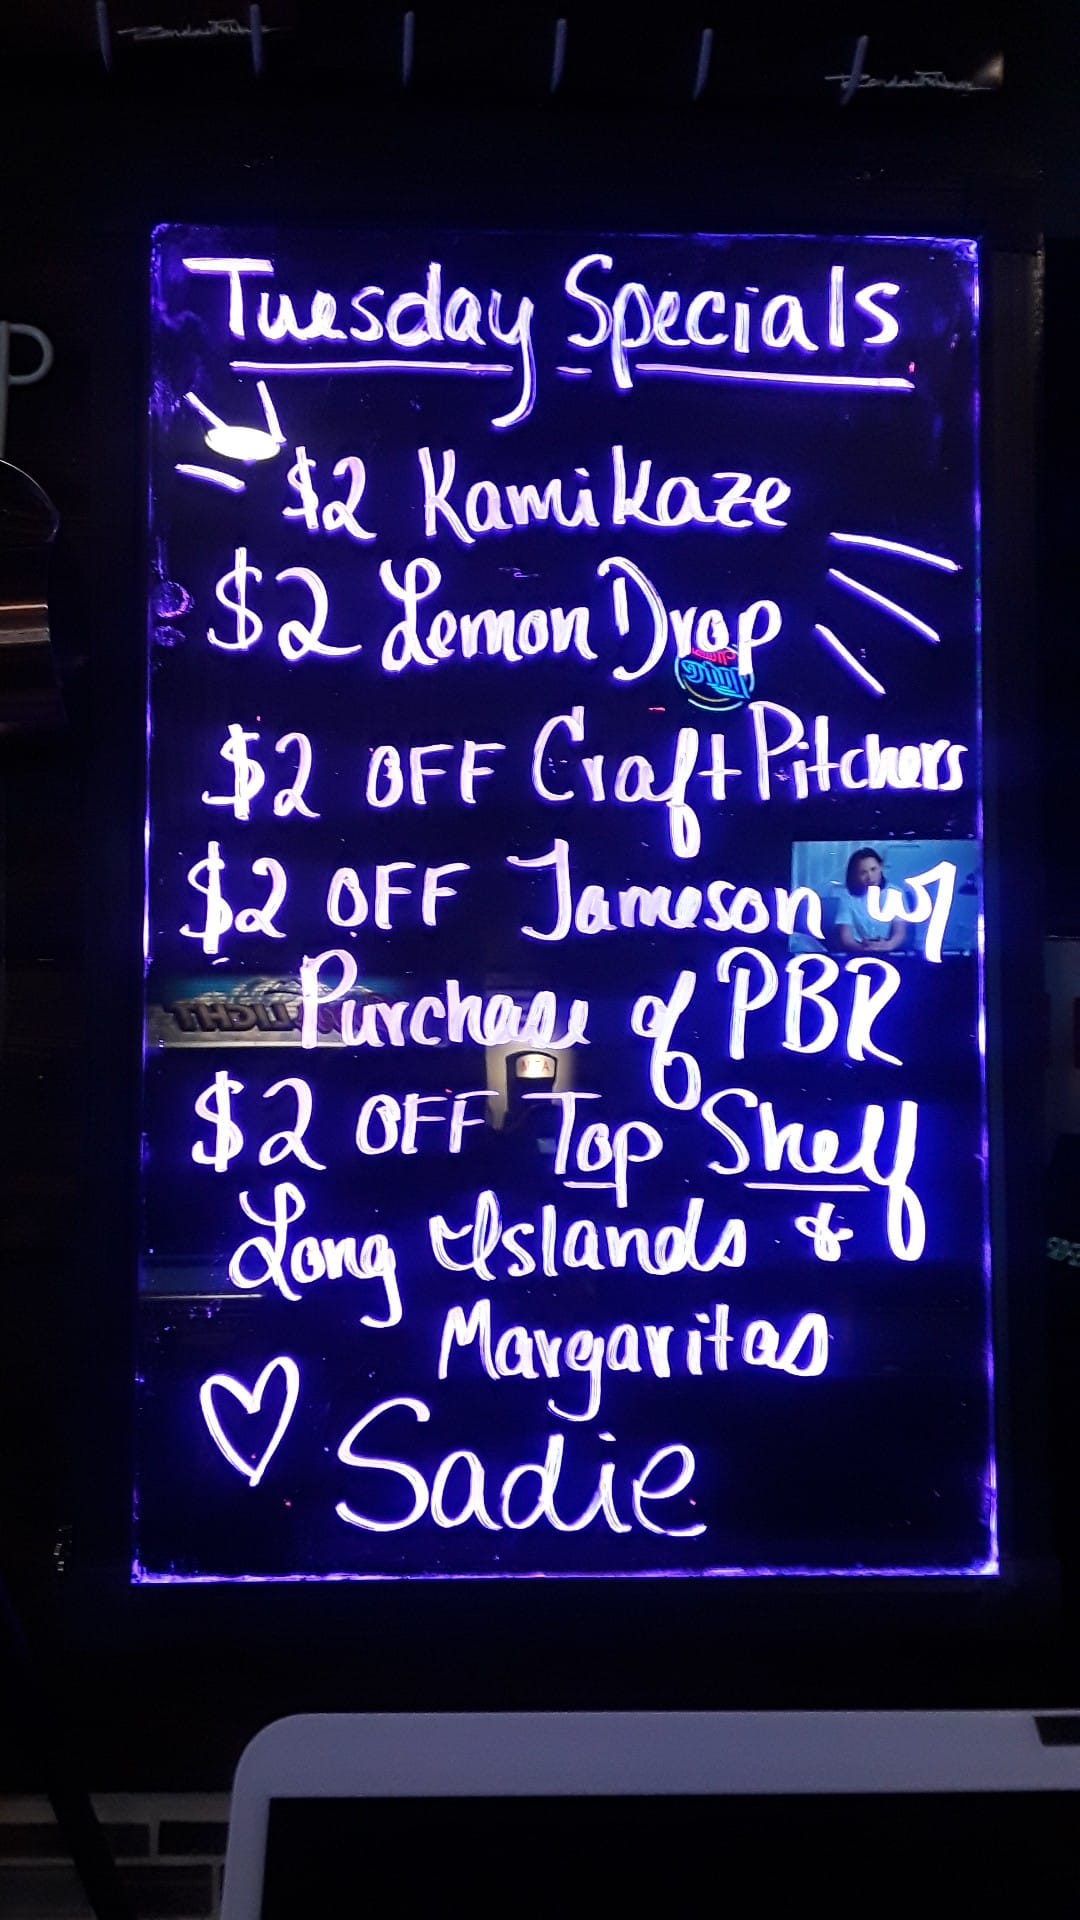 Tuesday Specials
$2 Kamikaze
$2 Lemon Drop
$2 OFF Craft Pitchers
$2 OFF Jameson w/
Purchase of PBR
$2 OFF Top Shelf
Long Islands &
Margaritas
Sadie